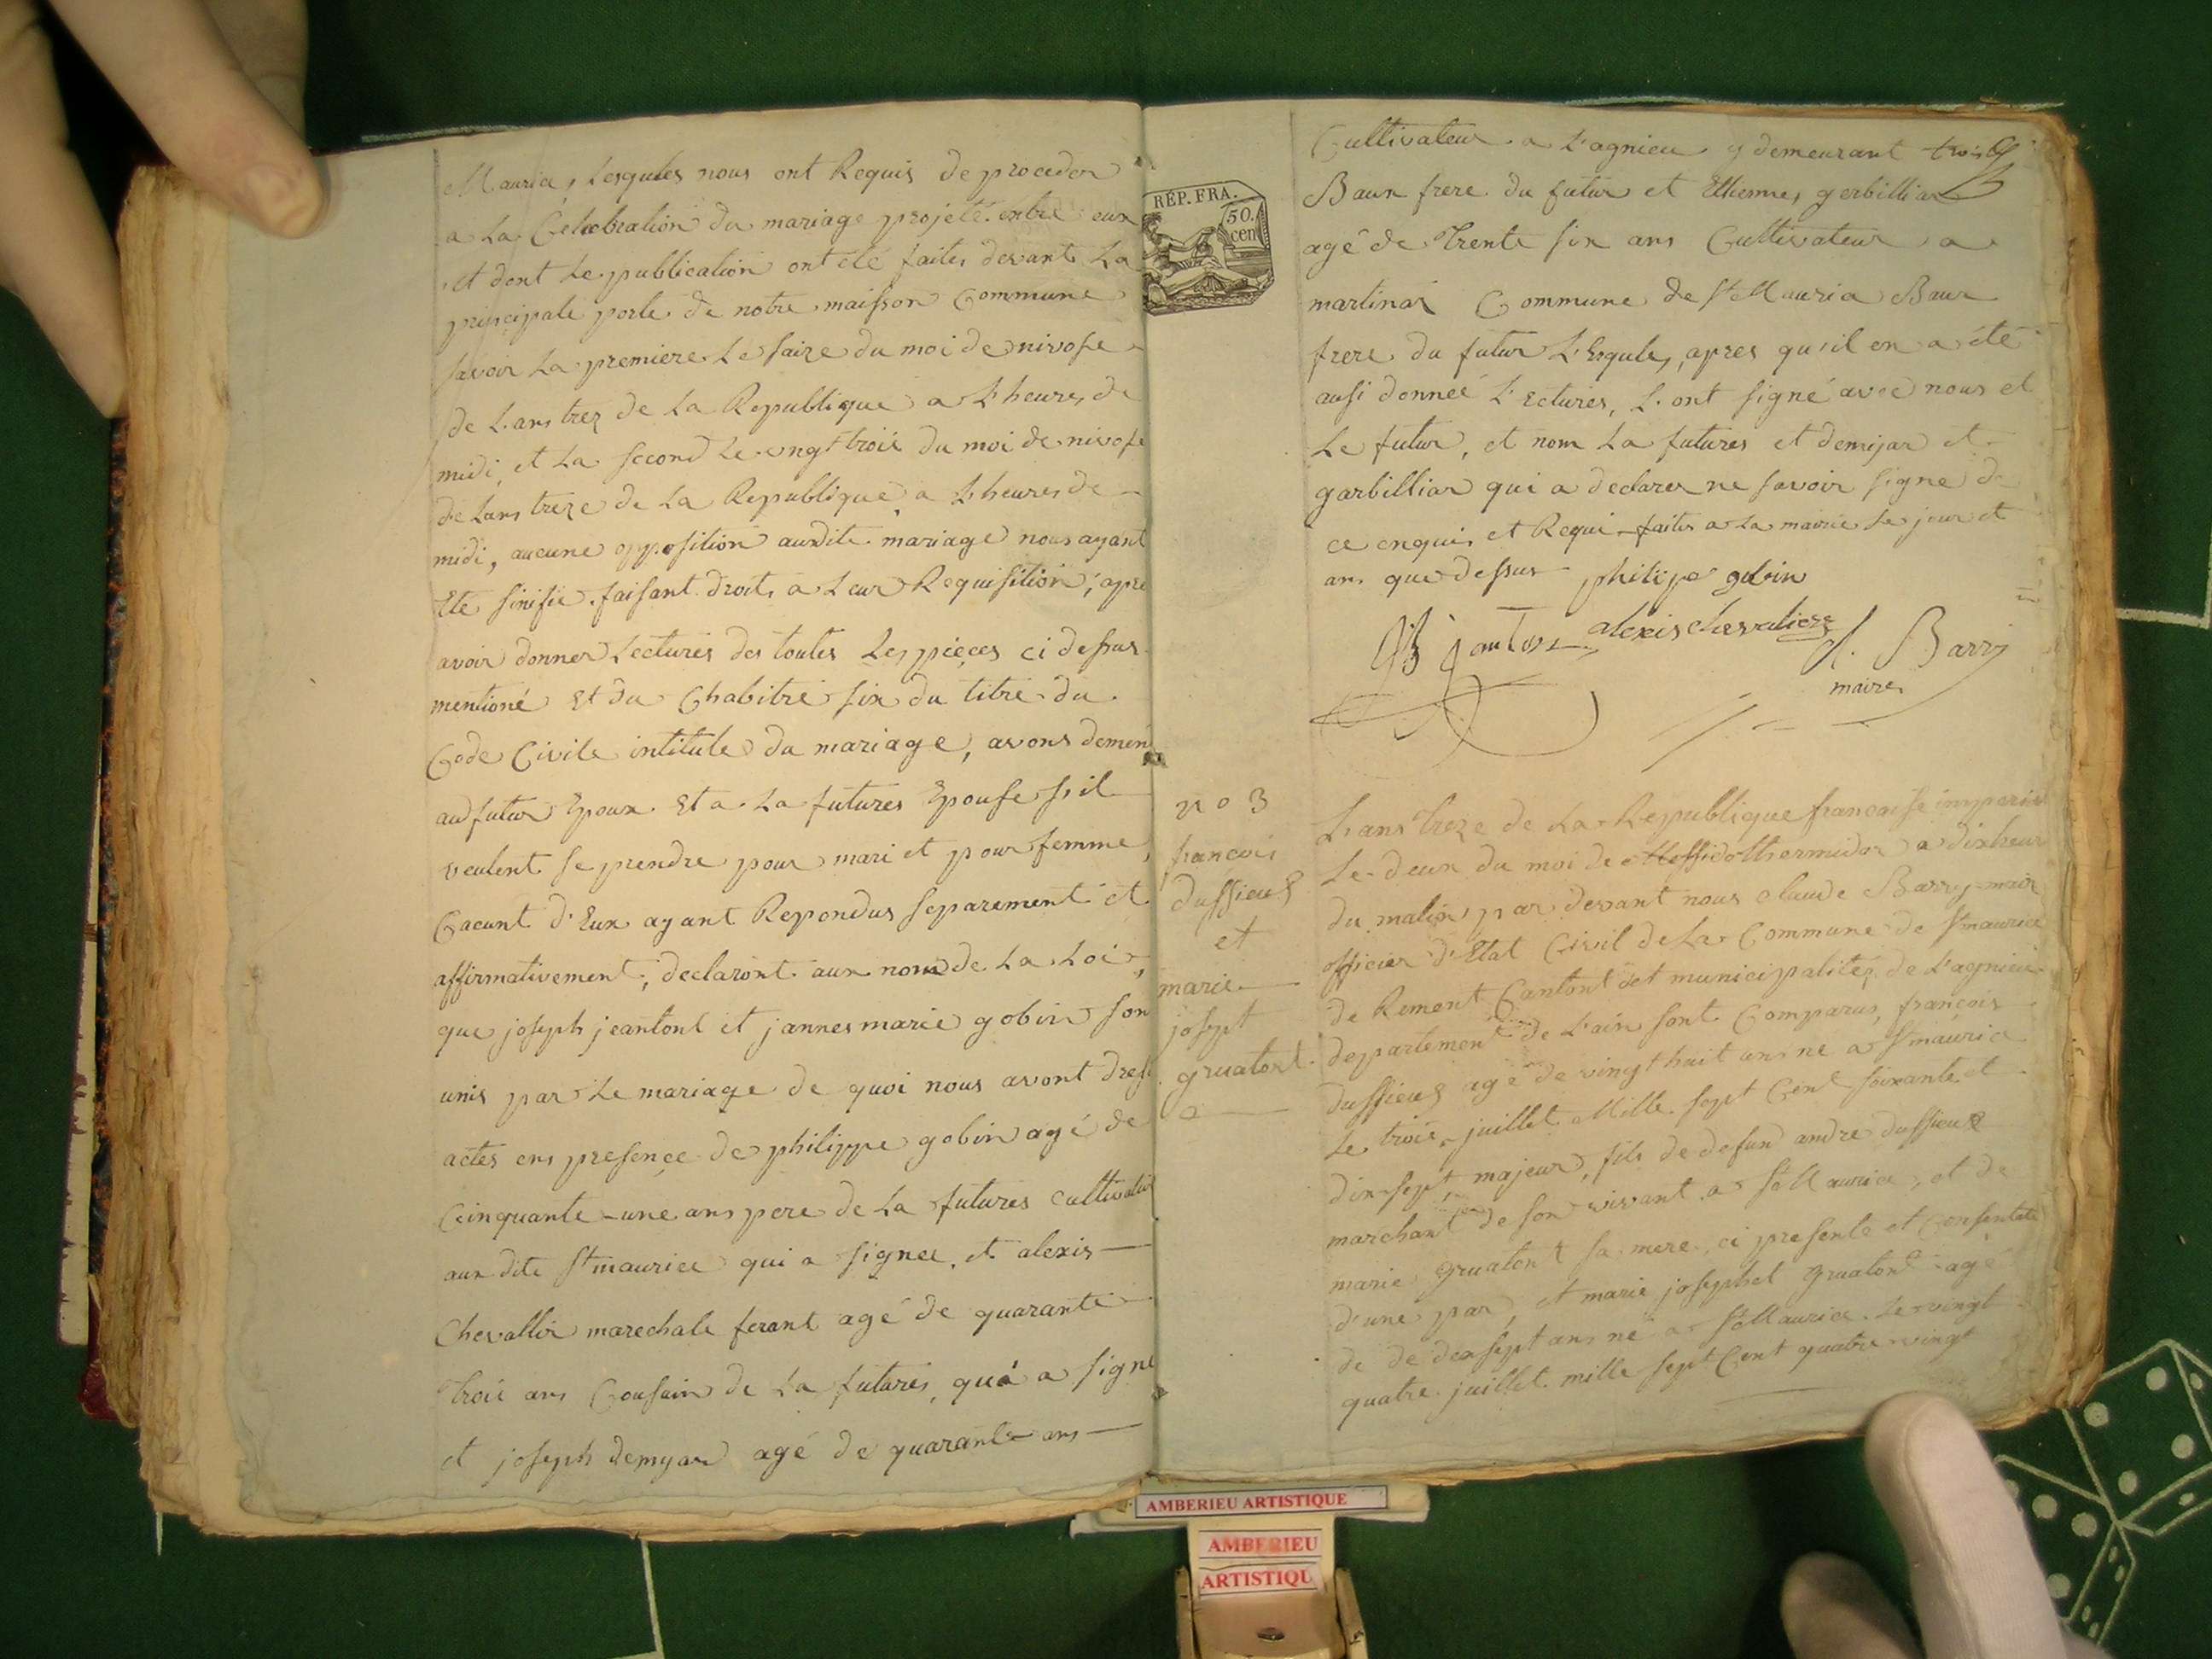 Mauria, Lesqules nous ont Requis de proceder
a La Celebration du mariage projeté entre eux
et dont Le publication ont été faites devant La
principale porte de notre maisson Commune
savoir La premiere Le saize du moi de nivose
de L'ans trez de La Republique a L'heures de
midi, et La second Le vingt trois du moi de nivose
de Lans treze de La Republique a L'heures de
midi, aucune opposition audite mariage nous ayant
Ete sinifie faisant droit a Leur Requisition, apre
avoir donner Lectures des toutes Les pieces ci dessus
mentioné Et du Chabitre six du titre du
Code Civile intitule du mariage, avons demen
au futur Epoux Et a La futures Epouse s'il
veulent se prendre pour mari et pour femme,
Cacunt d'Eux ayant Repondus separement et
affirmativement, declaront aux nom de La Loi
que joseph jeantont et jannes marie gobin son
unis par Le mariage de quoi nous avont dres
actes ens presence de philippe gobin agé de
Cinquante-une ans pere de La futures cultivateu
aux dite St maurice qui a signee, et alexis
Chevallir marechale ferant agé de quarante
trois ans Cousain de La futures, qui a signe
et joseph demyar agé de quarante ans
RÉP. FRA.
50. cen
Cultivateur a L'agnieu y demeurant
Baux frere du futur et Ethienne, gerbilliar
agé de Trente six ans Cultivateur a
martinas Commune de St Mauria Baux
frere du futur L'Esqules, apres qu'il en a été
ausi donneé L'Ectures, L'ont signé avec nous et
Le futur, et nom La futures et demijar et
garbilliar qui a declarer ne savoir signe de
ce enquis et Requi faites a La mairie Le jour et
ans que dessus philipe gobin
jantos alexis chevaliere Barry
maire
no 3
francois
dussieus
et
marie
josept
gruatont
L'ans treze de La Republique francaise imperia
Le deux du moi de Messido thermidor a dix heur
du matin par devant nous claude Barry mair
officier d'Etat Civil de La Commune de St maurice
de Rement Cantont et municipalités de L'agnieu
departement de L'ain sont Comparus, francois
dussieus agé de vingt huit ans ne a St mauria
Le trois juillet Mille sept Cent soixante et
dix-sept, majeur, fils de defun andre dussieus
marchant de son vivant a St Maurice, et de
marie gruatont sa mere ci presente et Consentate
d'une par, et marie josephet gruatont agé
de de dex sept ans ne a St Maurice Le vingt
quatre juillet mille sept Cent quatre vingt
AMBERIEU ARTISTIQUE
AMBERIEU
ARTISTIQU